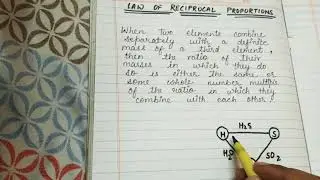 LAW OF RECIPROCAL PROPORTIONS
When Two elements combine
separately with a definite
mass of a third element,
then the ratio of their
masses in which they do
so is either the same or
some whole number multiple
of the ratio in which they
combine with each other.
H₂S
H S
H₂O SO₂